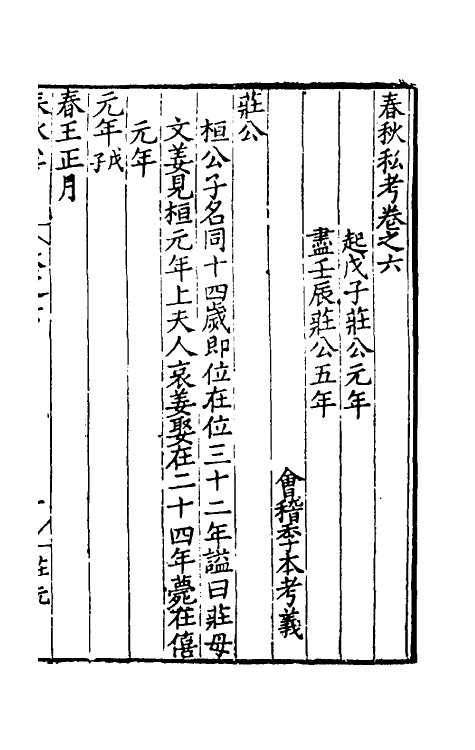 春秋私考卷之六
起戊子莊公元年
盡壬辰莊公五年
會稽季本考義
莊公
桓公子名同十四歲即位在位三十二年謚曰莊母
文姜見桓元年上夫人哀姜娶在二十四年薨在僖
元年
元年戊子
春王正月
莊元